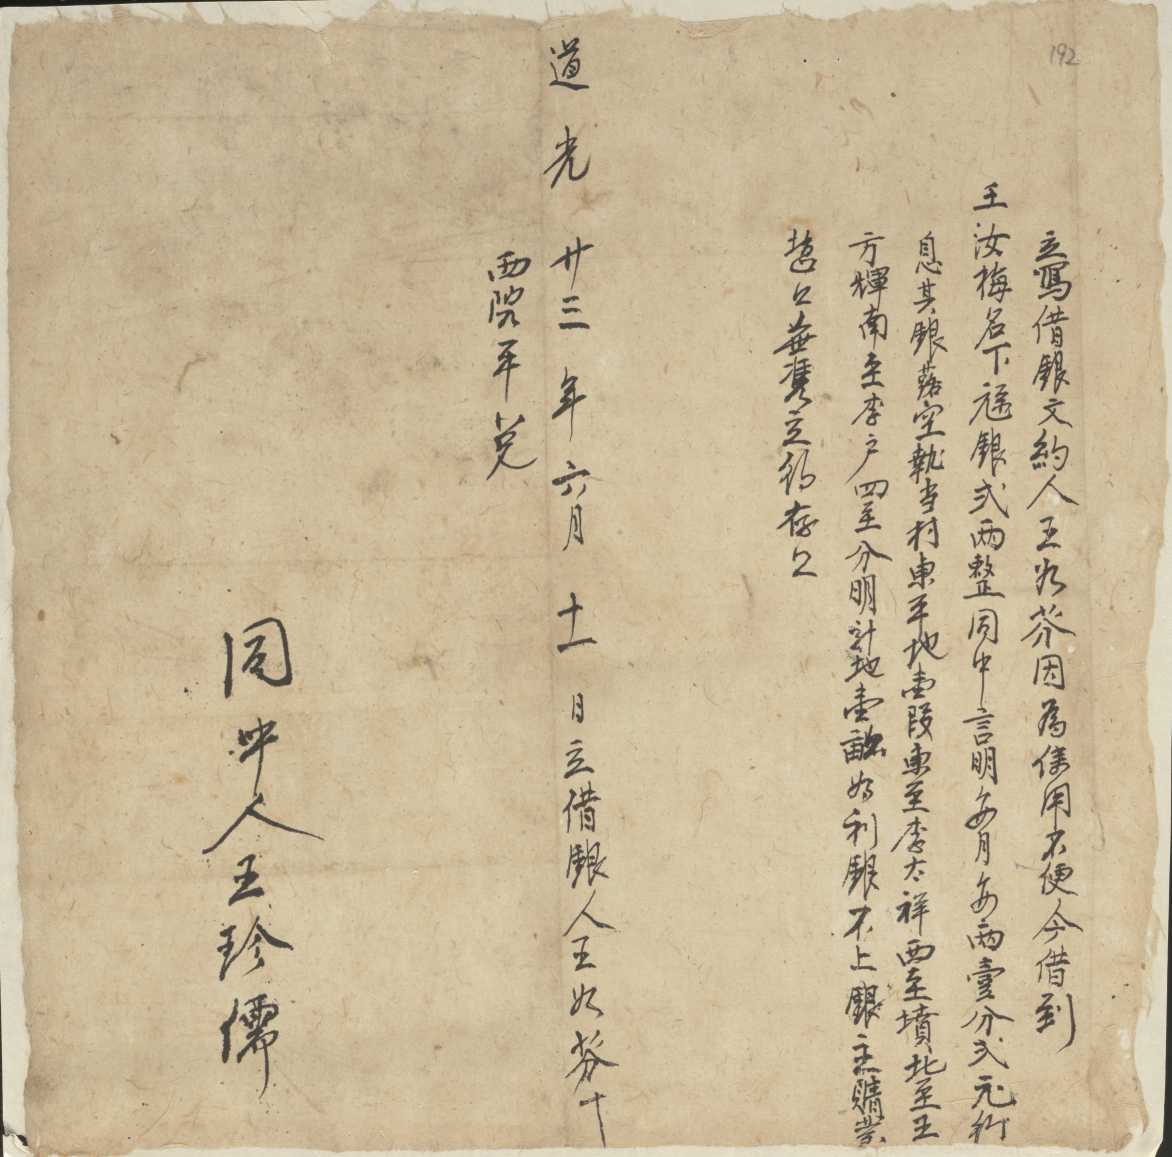 192
立寫借銀文約人王如芬因為使用不便今借到
王汝梅名下 銀弍两整同中言明每月每两壹分弍 行
息其銀落空執当村東平地壹段東至李太祥西至墳北至王
方輝南至李户四至分明計地壹畝如利銀不上銀主賭業
 無凴立約存口
道光廿三年六月十一日立借銀人王如芬十
西院平兑
同中人王珍儒